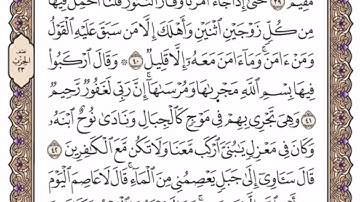 مُّقِيمٌ ٣٩ حَتَّىٰ إِذَا جَآءَ أَمْرُنَا وَفَارَ ٱلتَّنُّورُ قُلْنَا ٱحْمِلْ فِيهَا
مِن كُلٍّ زَوْجَيْنِ ٱثْنَيْنِ وَأَهْلَكَ إِلَّا مَن سَبَقَ عَلَيْهِ ٱلْقَوْلُ
وَمَنْ ءَامَنَ ۚ وَمَآ ءَامَنَ مَعَهُۥٓ إِلَّا قَلِيلٌ ٤٠ ۞ وَقَالَ ٱرْكَبُوا۟
فِيهَا بِسْمِ ٱللَّهِ مَجْر۪ىٰهَا وَمُرْسَىٰهَآ ۚ إِنَّ رَبِّى لَغَفُورٌ رَّحِيمٌ
٤١ وَهِىَ تَجْرِى بِهِمْ فِى مَوْجٍ كَٱلْجِبَالِ وَنَادَىٰ نُوحٌ ٱبْنَهُۥ
وَكَانَ فِى مَعْزِلٍ يَٰبُنَىَّ ٱرْكَب مَّعَنَا وَلَا تَكُن مَّعَ ٱلْكَٰفِرِينَ
٤٢ قَالَ سَـَٔاوِىٓ إِلَىٰ جَبَلٍ يَعْصِمُنِى مِنَ ٱلْمَآءِ ۚ قَالَ لَا عَاصِمَ ٱلْيَوْمَ
الحزب
٢٣